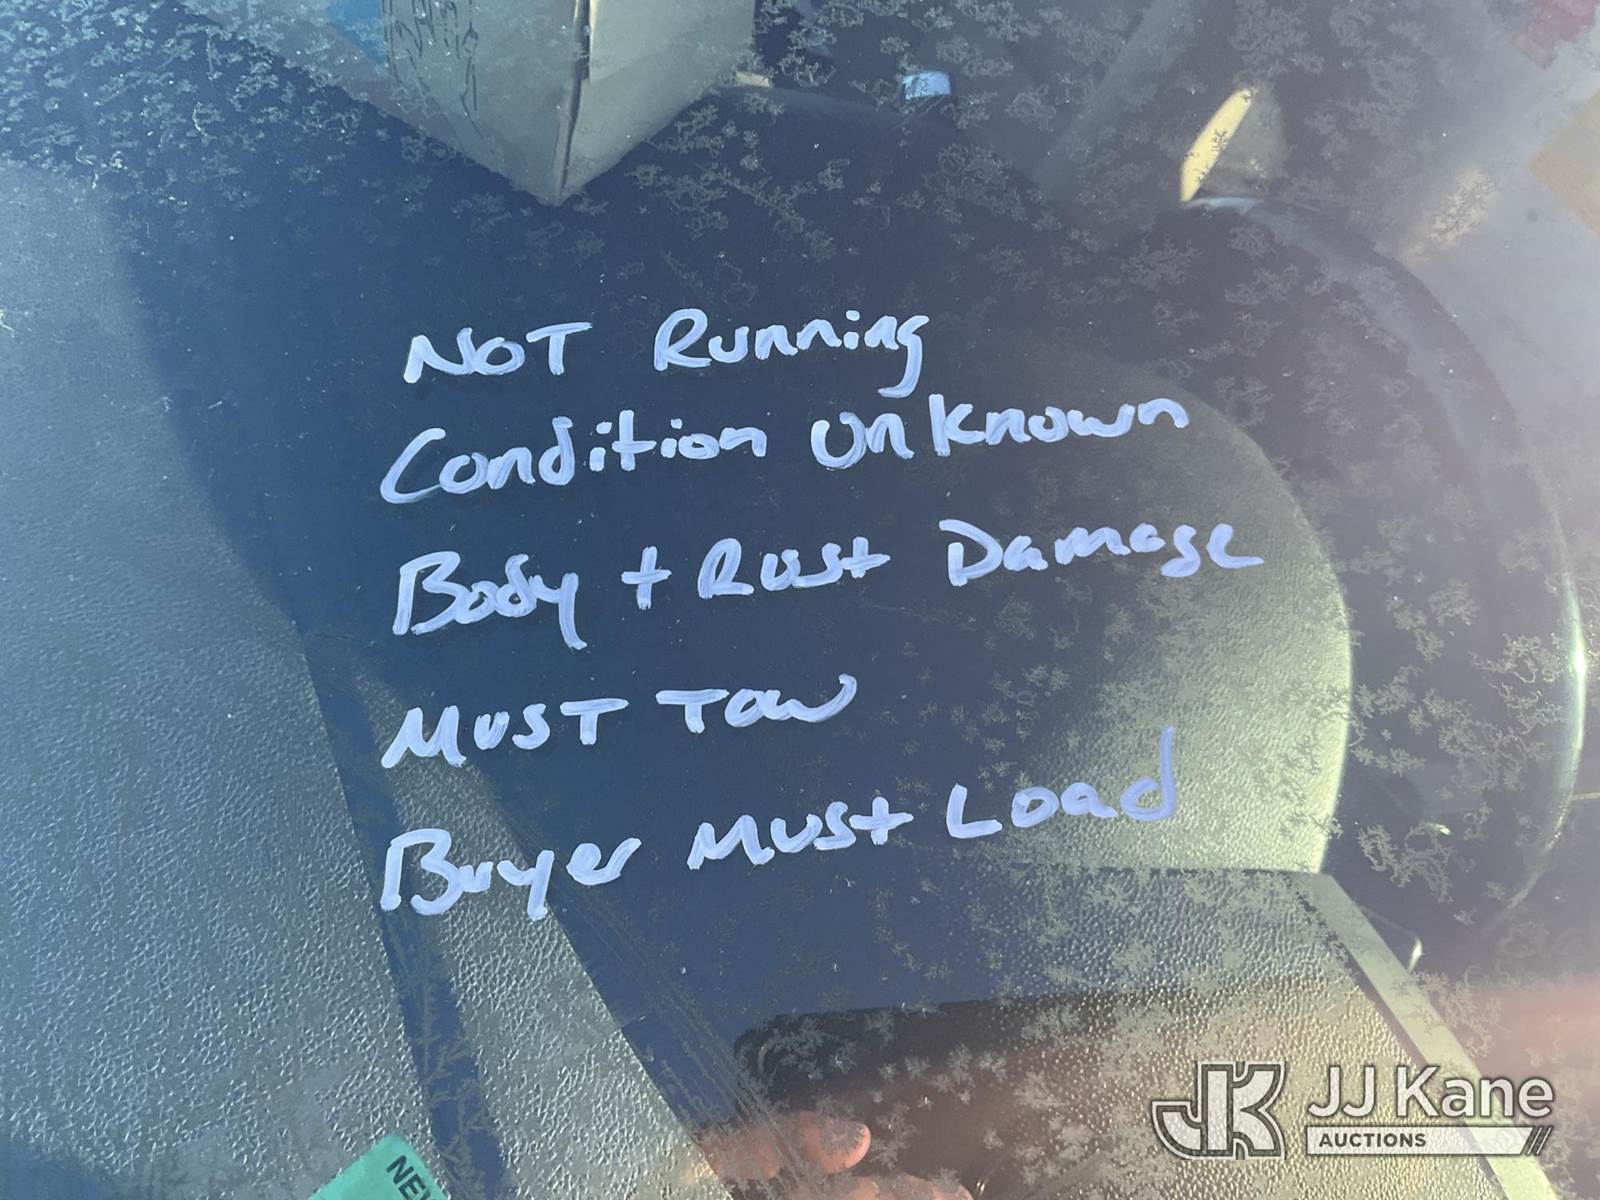 NOT Running
Condition Unknown
Body + Rust Damage
Must Tow
Buyer Must Load
NEW
JK JJ Kane
AUCTIONS